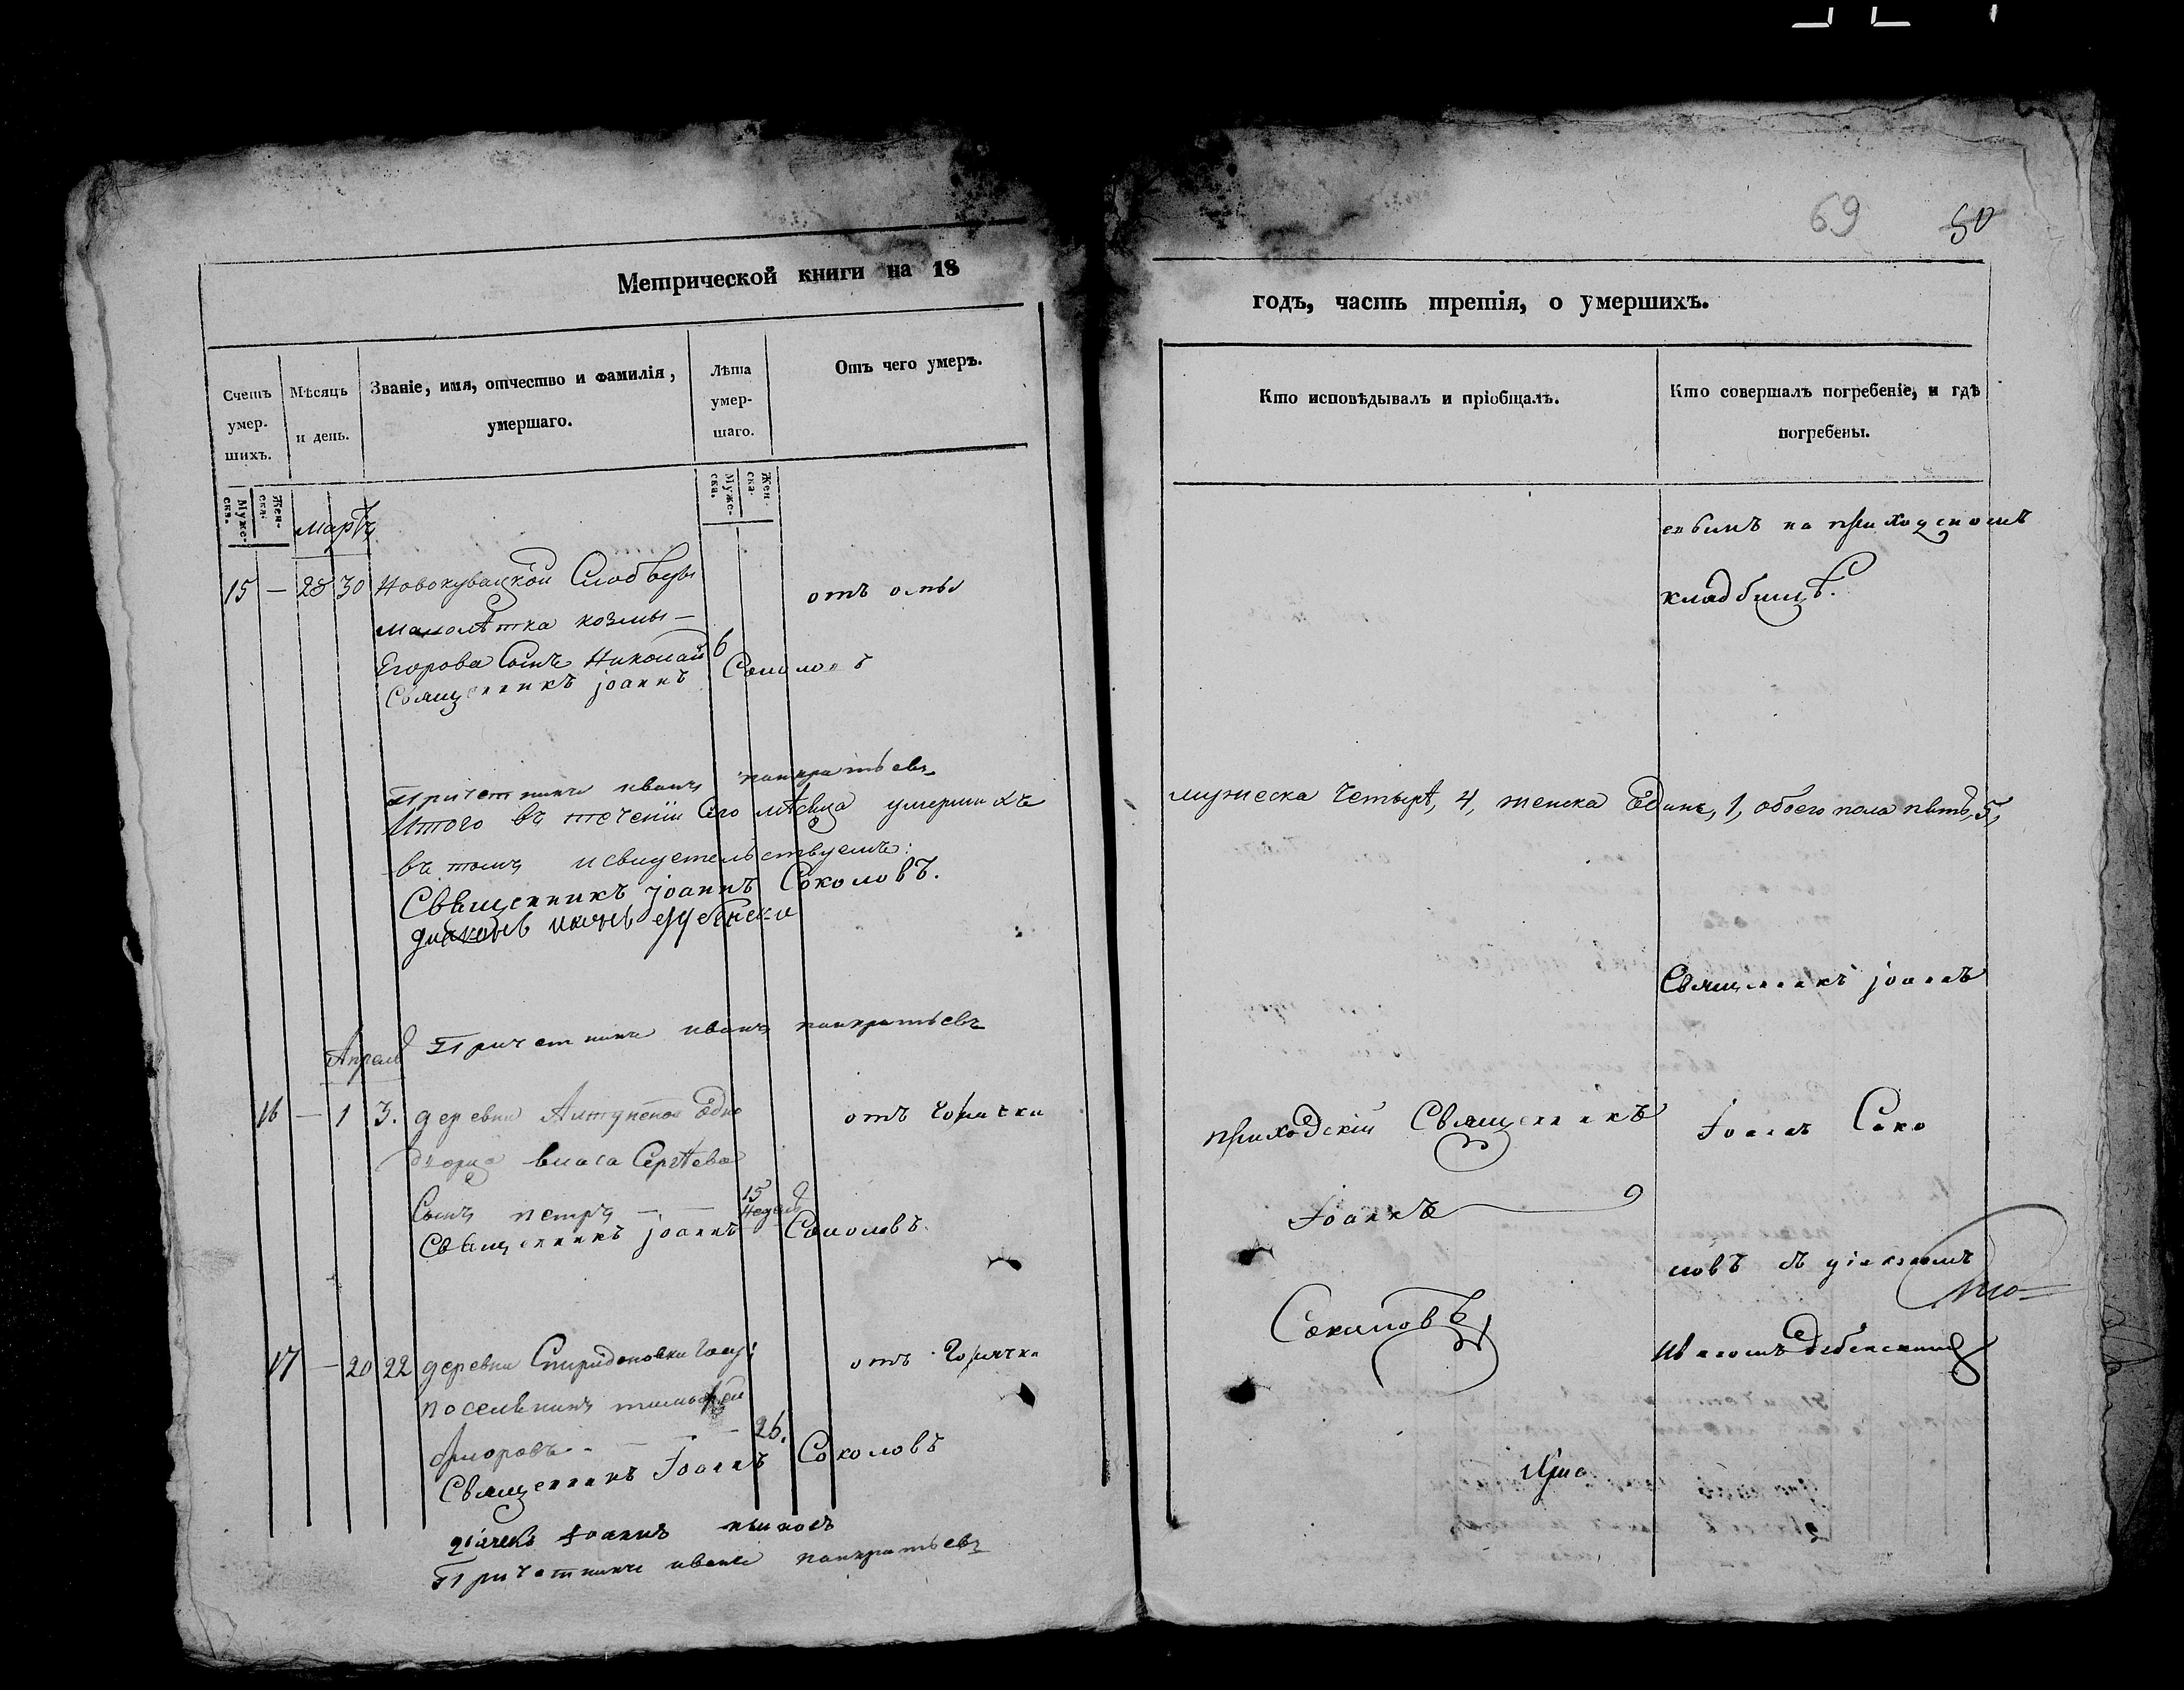 69 50
Метрической книги на 18
годъ, часть третія, о умершихъ.
Счетъ умер-шихъ.
Мѣсяцъ и день.
Званіе, имя, отчество и фамилія, умершаго.
Лѣта умер-шаго.
Отъ чего умеръ.
Кто исповѣдывалъ и пріобщалъ.
Кто совершалъ погребеніе, и гдѣ погребены.
Муже-ска.
Жен-ска.
Муже-ска.
Жен-ска.
мартъ
на приходскомъ
кладбищѣ.
15 — 28 30
отъ оспы
малолѣтка козмы —
Егорова Сынъ Николай 6
Священникъ јоаннъ Соколовъ
Причетникъ иванъ панкратьевъ
Итого въ теченіи Сего мѣсяца умершихъ
мужеска Четырѣ, 4, женска Едина, 1, обоего пола пять, 5,
въ томъ и свидетельствуемъ:
Священникъ јоаннъ Соколовъ.
Священникъ јоаннъ
Причетникъ иванъ панкратьевъ
Апрель
16 — 1 3. деревни Одно
отъ горячки
приходскій Священникъ
Іоаннъ Соко
дворца власа Сергѣева
Сынъ петръ — — 15 недель
Іоаннъ
Священникъ јоаннъ Соколовъ.
ловъ съ діякономъ
Соколовъ
17 — 20 22 деревни Спиридоновки
отъ горячки
поселянинъ
26.
Священникъ Іоаннъ Соколовъ
Іоаннъ
Причетникъ иванъ панкратьевъ